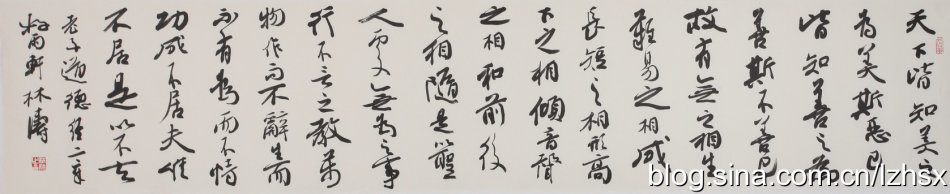 天下皆知美之
為美斯惡已
皆知善之為
善斯不善已
故有無之相生
難易之相成
長短之相形高
下之相傾音聲
之相和前後
之相隨是聖
人處無為之事
行不言之教萬
物作而不辭生而
不有為而不恃
功成不居夫唯
不居是以不去
老子道德經二章
雨軒林濤
blog.sina.com.cn/lzhsx